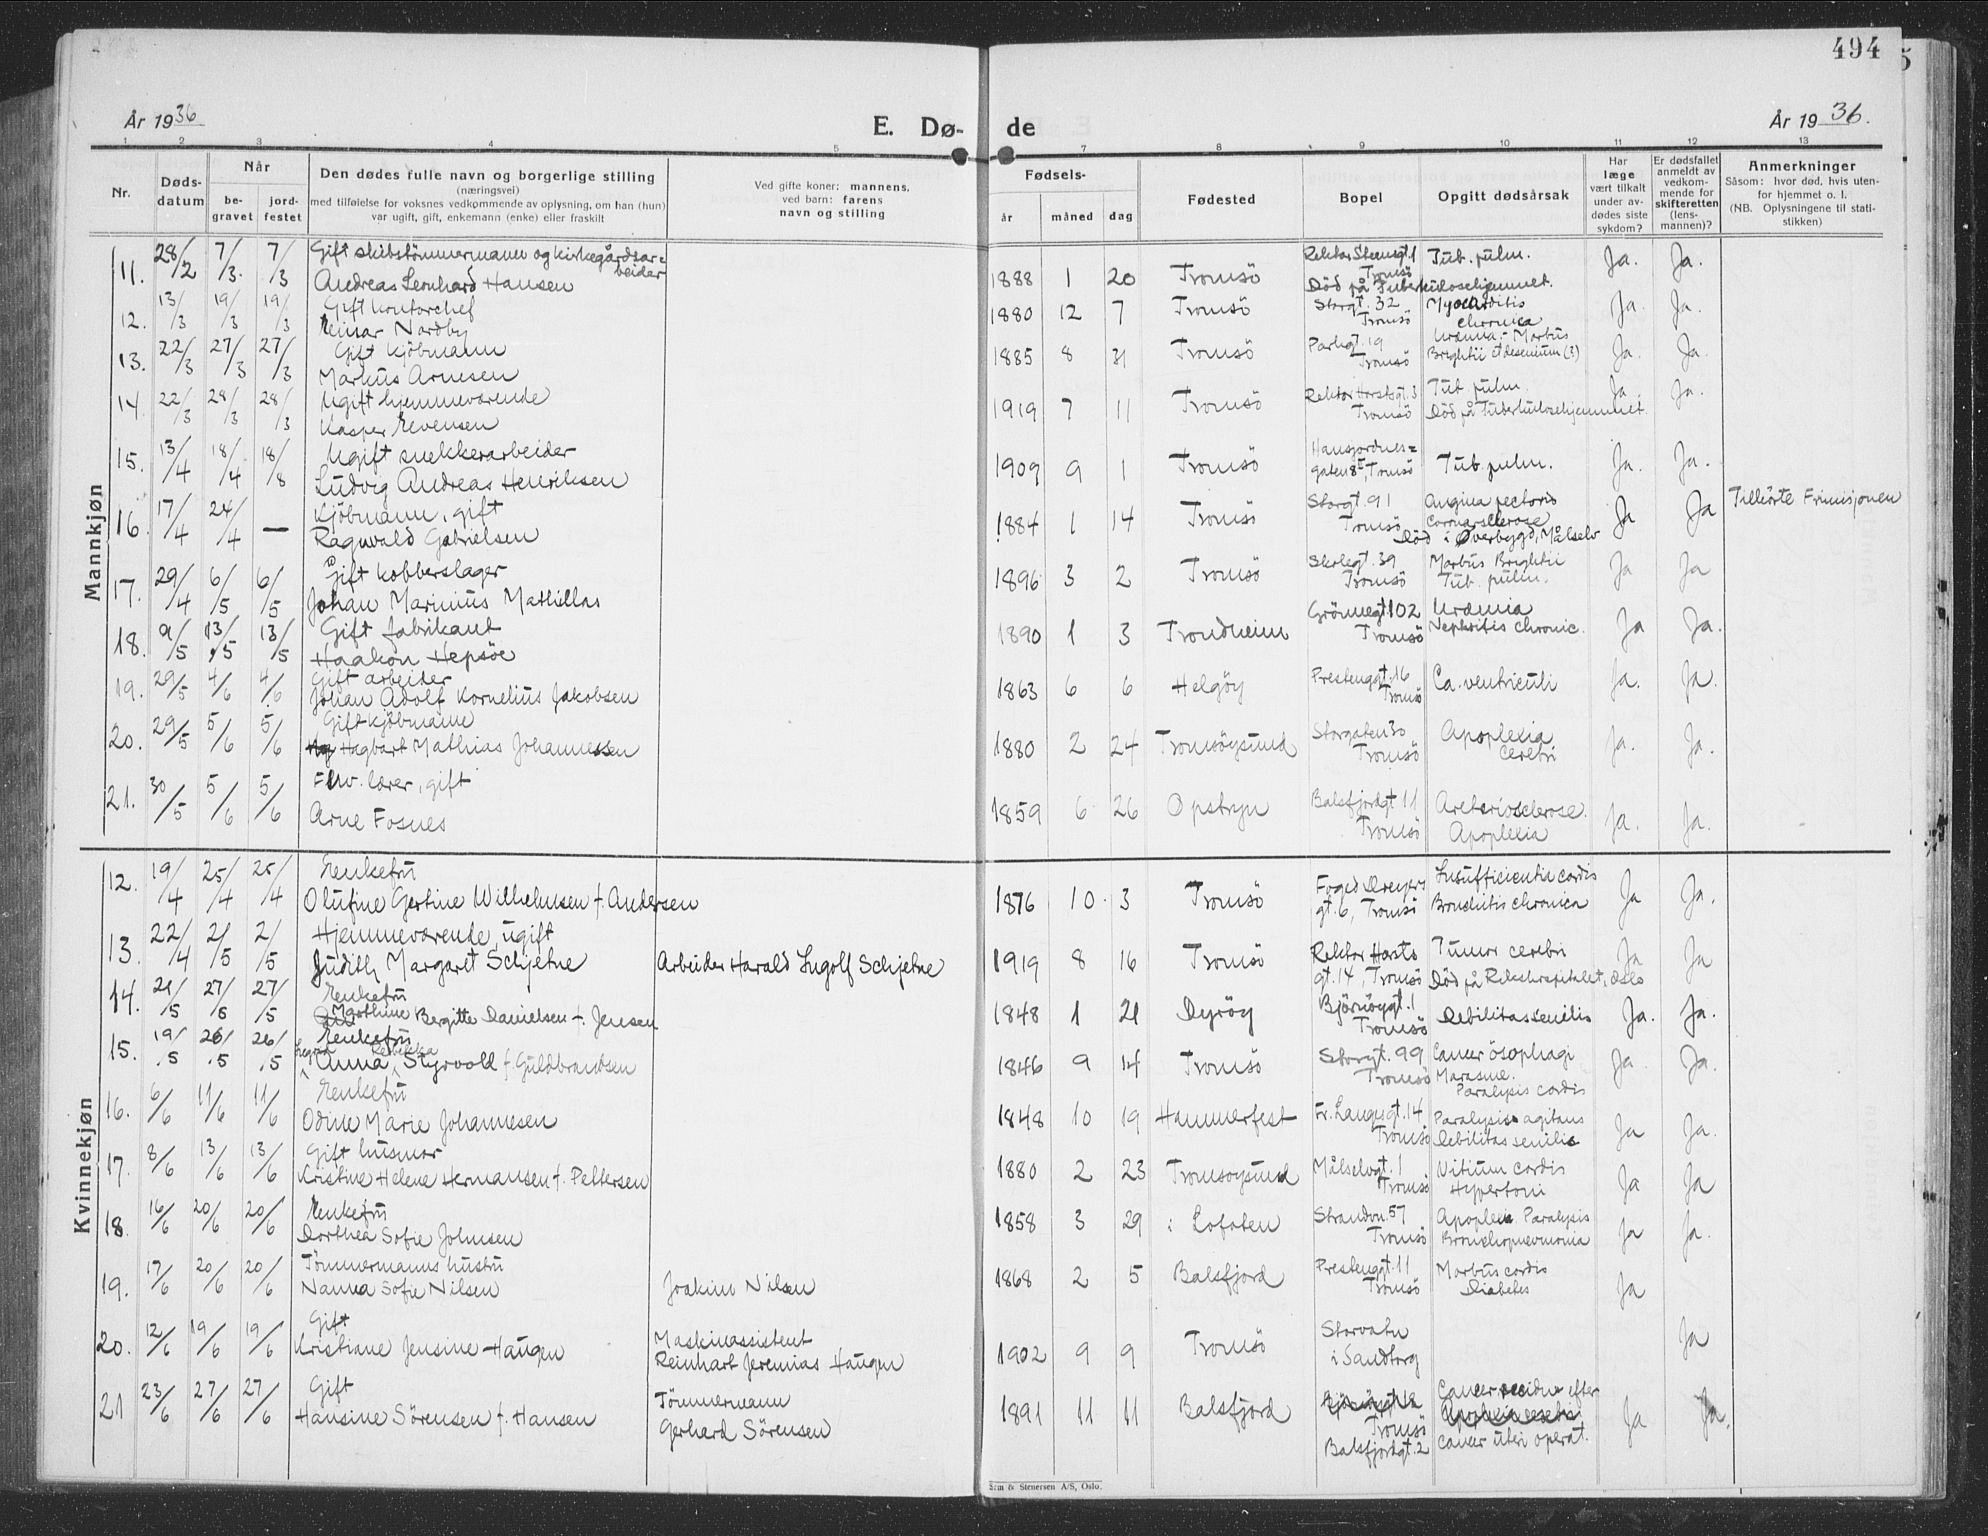 494
År 1936
E. Dø-
de
År 1936.
1 2 3 4 5 7 8 9 10 11 12 13
Nr.
Døds-
datum
Når
be-
gravet
jord-
festet
Den dødes fulle navn og borgerlige stilling
(næringsvei)
med tilføielse for voksnes vedkommende av oplysning, om han (hun)
var ugift, gift, enkemann (enke) eller fraskilt
Ved gifte koner: mannens,
ved barn: farens
navn og stilling
Fødsels-
år
måned
dag
Fødested
Bopel
Opgitt dødsårsak
Har
læge
vært tilkalt
under av-
dødes siste
sykdom?
Er dødsfallet
anmeldt av
vedkom-
mende for
skifteretten
(lens-
mannen)?
Anmerkninger
Såsom: hvor død, hvis uten-
for hjemmet o. l.
(NB. Oplysningene til stati-
stikken)
Mannkjøn
11. 28/2 7/3. 7/3 Gift skibstömmermann og kirkegårdsar=
beider
Andreas Leonhard Hansen 1888 1 20 Tromsö Rektor Steensgt. 1
Tromsö Tub. pulm. Ja. Ja.
Död på Tuberkulosehjemmet.
12. 13/3 19/3 19/3 Gift kontorchef
Einar Nordby 1880 12 7 Tromsö Storgt. 32
Tromsö Myocarditis
chronica Ja. Ja.
13. 22/3 27/3 27/3 Gift kjöbmann
Markus Arnesen 1885 8 31 Tromsö Parkgt. 19
Tromsö Uræmia - Morbus
Brightii Ja. Ja.
14. 22/3 28/3 28/3 Ugift hjemmeværende
Kasper Evensen 1919 7 11 Tromsö Rektor Horstsgt. 3
Tromsö Tub. pulm.
Död på Tuberkulosehjemmet. Ja. Ja.
15. 13/4 18/4 18/8 Ugift snekkerarbeider
Ludvig Andreas Henriksen 1909 9 1 Tromsö Hansjordnes=
gaten 8, Tromsö Tub. pulm. Ja. Ja.
16. 17/4 24/4 — Kjöbmann, gift
Ragnvald Gabrielsen 1884 1 14 Tromsö Storgt. 91
Tromsö Angina pectoris
Coronarsclerose
Död i Øverbygd, Målselv Ja Ja Tilhörte Frimisjonen
17. 29/4 6/5 6/5 Gift kobberslager
Johan Marinius Mathillas 1896 3 2 Tromsö Skolegt. 39
Tromsö Morbus Brightii
Tub. pulm. Ja Ja
18. 9/5 13/5 13/5 Gift fabrikant
Haakon Hepsöe 1890 1 3 Trondheim Grönnegt. 102
Tromsö Uræmia
Nephritis chronic. Ja Ja.
19. 29/5 4/6 4/6 Gift arbeider
Johan Adolf Kornelius Jakobsen 1863 6 6 Helgöy Prestenggt. 16
Tromsö Ca. ventriculi Ja. Ja.
20. 29/5 5/6 5/6 Gift kjöbmann
Hagbart Mathias Johannessen 1880 2 24 Tromsöysund Storgaten 30
Tromsö Apoplexia
cerebri Ja. Ja.
21. 30/5 5/6 5/6 Fhv. lærer, gift
Arne Fosnes 1859 6 26 Opstryn Balsfjordgt. 11
Tromsö Arteriosclerose.
Apoplexia Ja. Ja.
Kvinnekjøn
12. 19/4 25/4 25/4 Enkefru
Olufine Gertine Wilhelmsen f. Andersen 1876 10. 3 Tromsö Foged Dreyers
gt. 6, Tromsö Insufficientia cordis
Bronchitis chronica Ja Ja.
13. 22/4 2/5 2/5 Hjemmeværende, ugift
Judith Margaret Schjetne Arbeider Harald Ingolf Schjetne 1919 8 16 Tromsö Rektor Horsts
gt. 14, Tromsö Tumor cerebri
Död på Rikshospitalet, Oslo Ja Ja
14. 21/5 27/5 27/5 Enkefru
Marthine Bergitte Danielsen f. Jensen 1848 1 21 Dyröy Björnöygt. 1
Tromsö Debilitas senilis Ja. Ja.
15. 19/5 26/5 26/5 Enkefru
Anna Rebekka Styrvold f. Guldbrandsen 1846 9 14 Tromsö Storgt. 99
Tromsö Cancer ösophagi
Marasme.
Paralysis cordis Ja. Ja.
16. 6/6 11/6 11/6 Enkefru
Odine Marie Johannesen 1848 10 19 Hammerfest Fr. Langesgt. 14
Tromsö Paralysis agitans
Debilitas senilis Ja Ja.
17. 8/6 13/6 13/6 Gift husmor
Kristine Helene Hermansen f. Pettersen 1880 2 23 Tromsöysund Målselvgt. 1
Tromsö Vitium cordis
Hypertoni Ja Ja
18. 16/6 20/6 20/6 Enkefru
Dorthea Sofie Johnsen 1858 3 29 i Lofoten Strandvn. 57
Tromsö Apoplexia Paralysis
Bronchopneumonia Ja Ja.
19. 17/6 20/6 20/6 Tömmermanns hustru
Nanna Sofie Nilsen Joakim Nilsen 1868 2 5 Balsfjord Prestenggt. 11
Tromsö Morbus cordis
Diabetes Ja
20. 12/6 19/6 19/6 Gift
Kristiane Jensine Haugen Maskinassistent
Reinhart Jeremias Haugen 1902 9 9 Tromsö Storvatn
i Sandtorg Ja
21 23/6 27/6 27/6 Gift
Hansine Sörensen f. Hansen Tömmermann
Gerhard Sörensen 1891 11 11 Balsfjord Tromsö
Balsfjordgt. 2 Cancer recidiv efter
cancer uteri operat. Ja Ja.
& Stenersen A/S, Oslo.